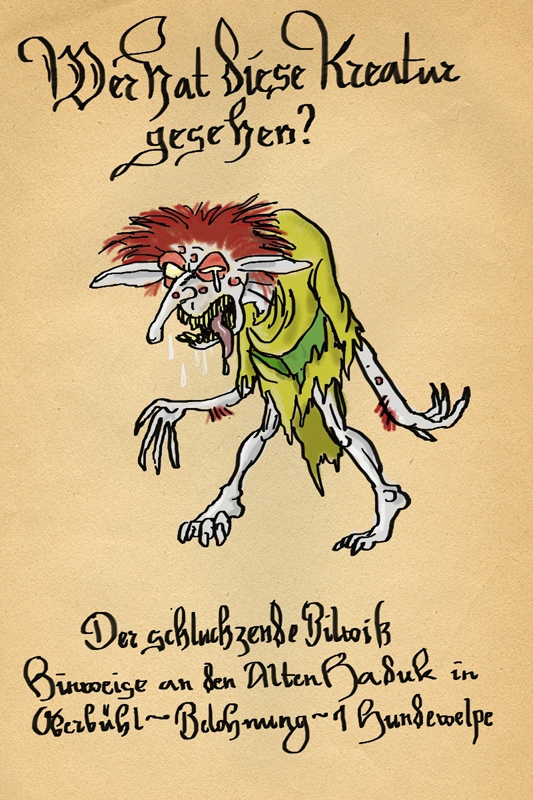 Wer hat diese Kreatur
gesehen?
Der schluchzende Bilwiß
Hinweise an den Alten Haduk in
Oberbühl ~ Belohnung ~ 1 Hundewelpe